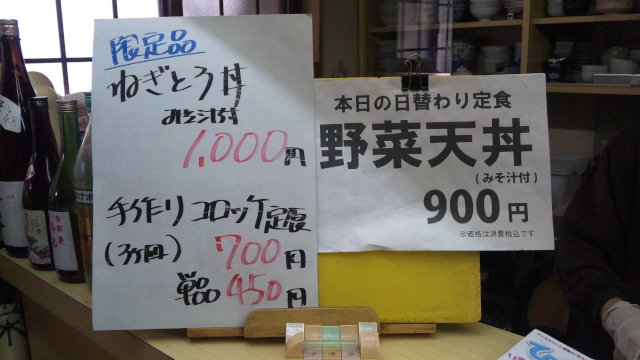 限定品
ねぎとろ丼
みそ汁付
1,000円
手作りコロッケ定食
(3ヶ回)
700円
単品 450円
本日の日替わり定食
野菜天丼
(みそ汁付)
900円
※価格は消費税込です